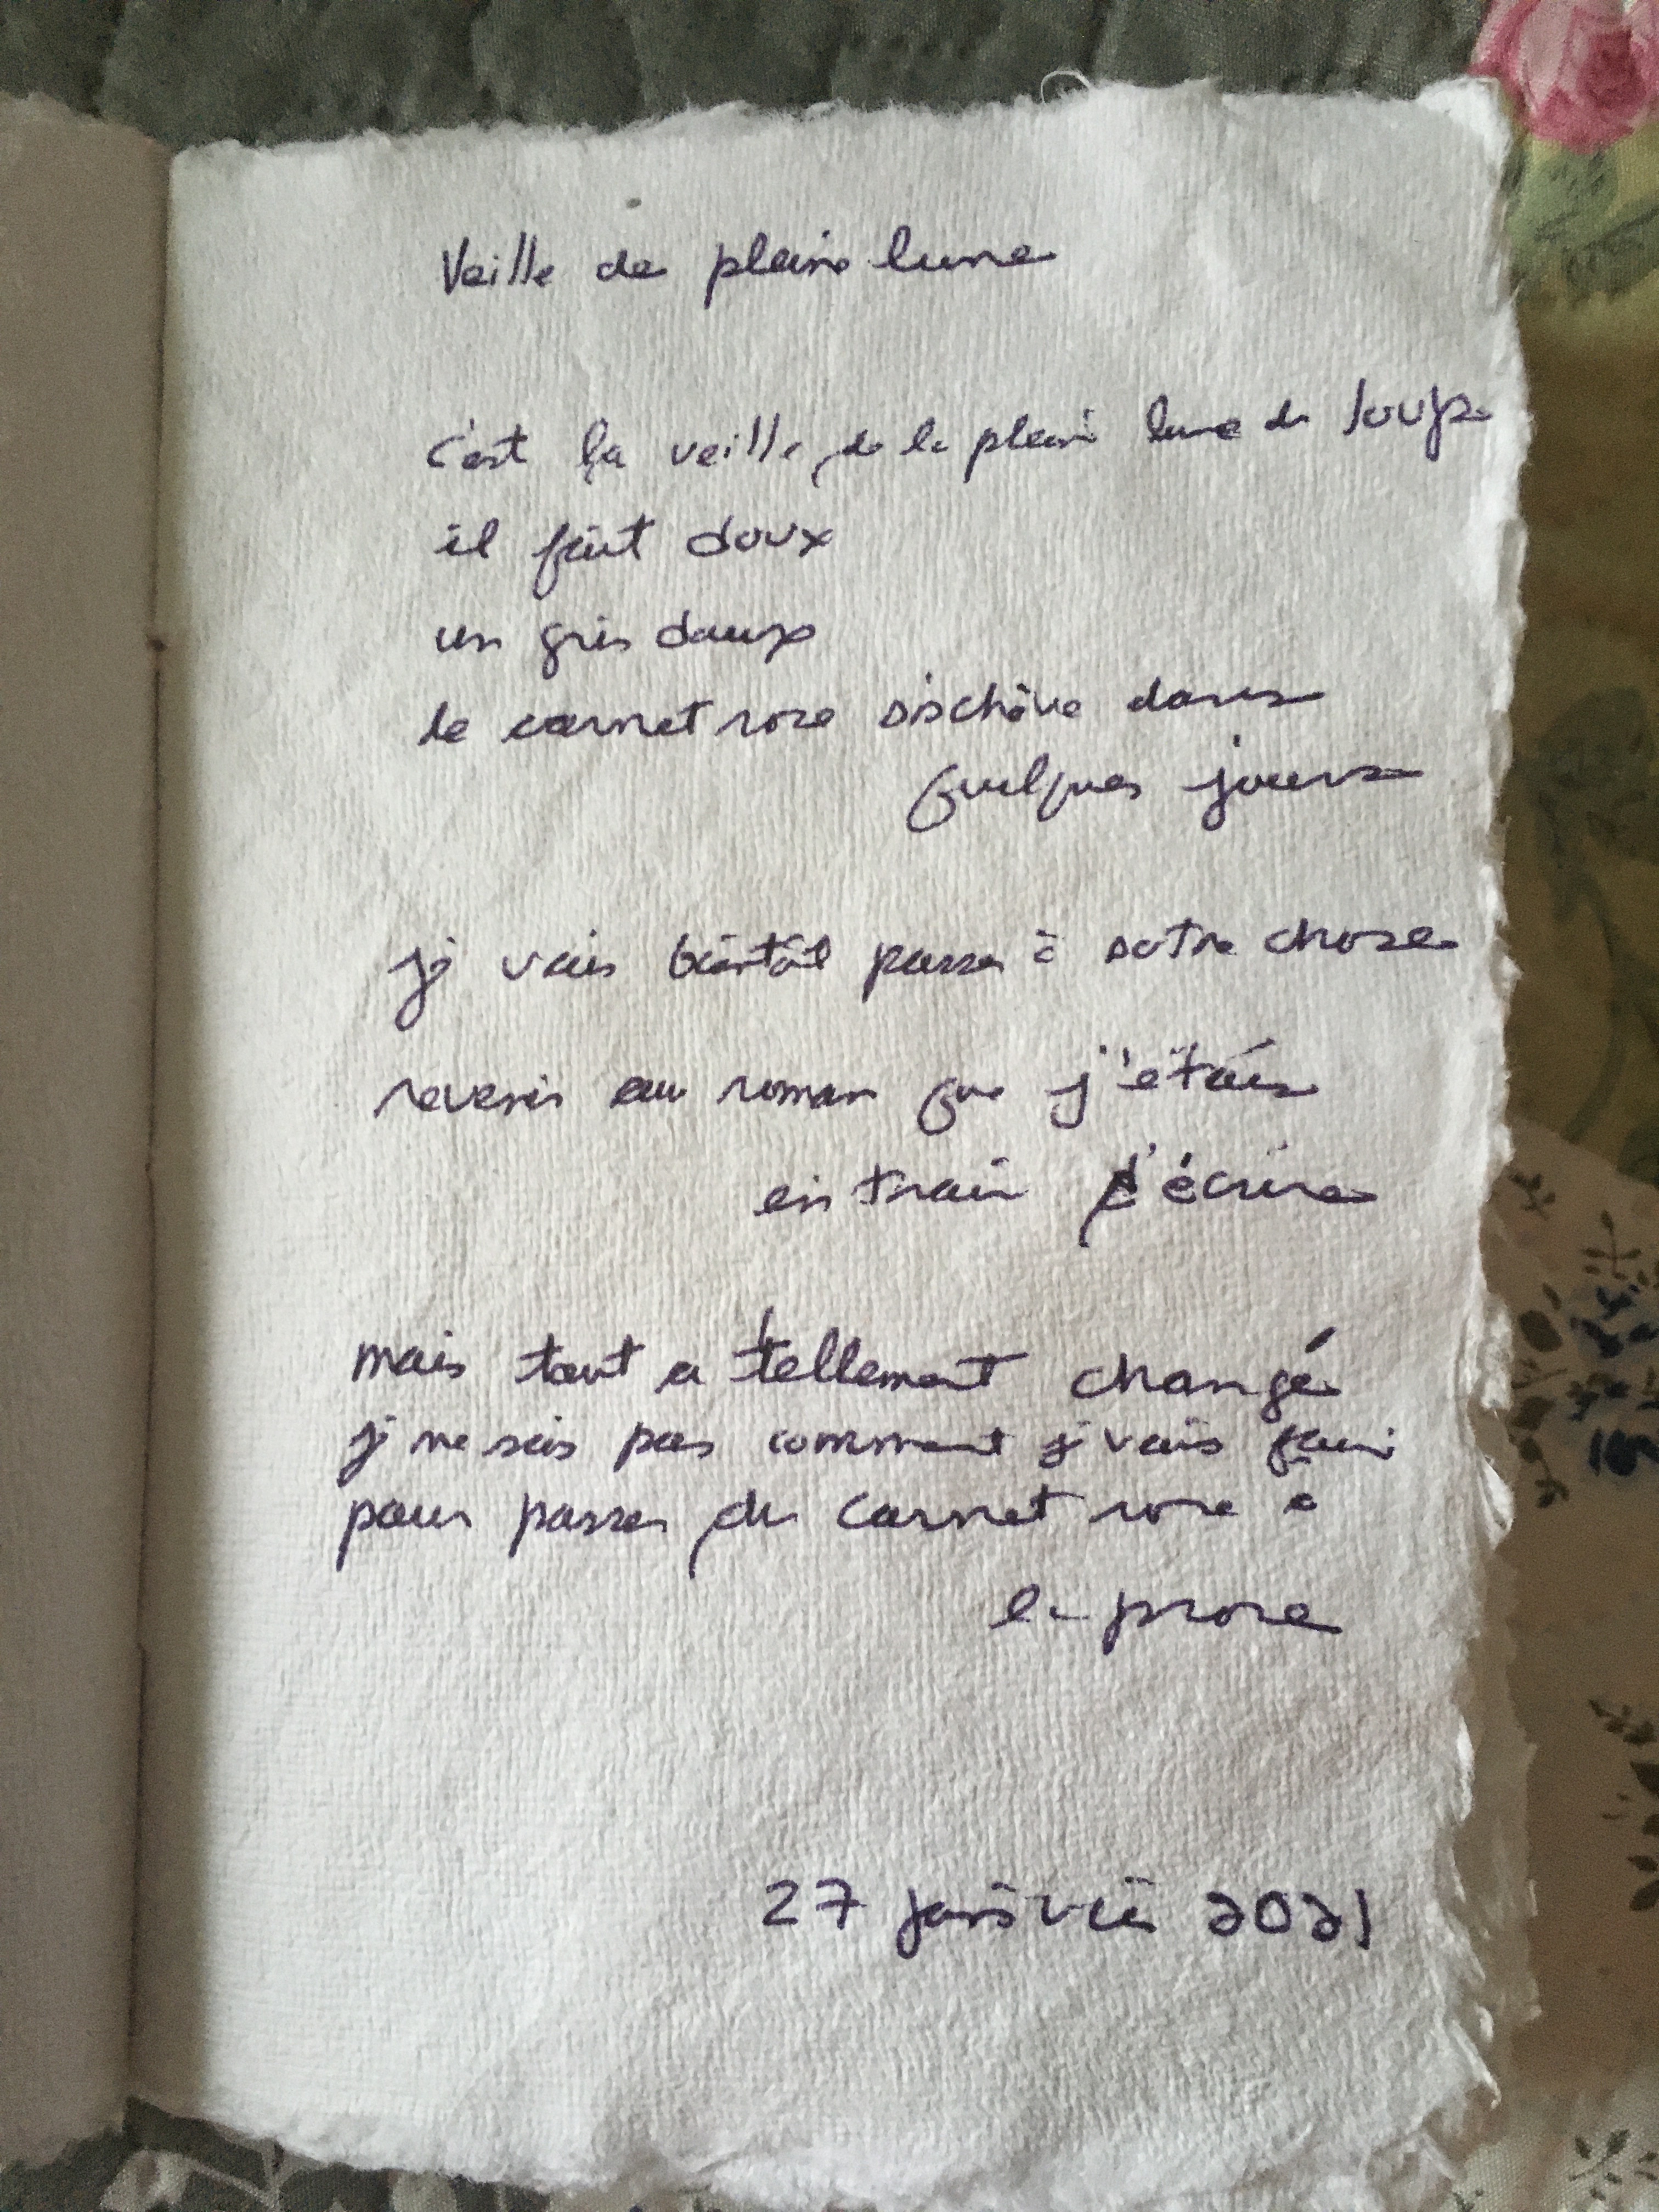 Veille de pleine lune
c'est la veille de la pleine lune du loup
il fait doux
un gris doux
le carnet rose s'achève dans
quelques jours
je vais bientôt passer à autre chose
revenir au roman que j'étais
en train d'écrire
mais tout a tellement changé
je ne sais pas comment je vais faire
pour passer du carnet rose à
la prose
27 janvier 2021